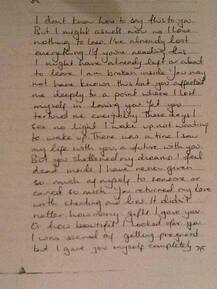 I don't know how to say this to you.
But I might aswell now as I have
nothing to lose. I've already lost
everything. If you're reading this
I might have already left or about
to leave. I am broken inside. You may
not have known this but you affected
me deeply to a point where I lost
myself in loving you. Yet you
tortured me everyday. These days I
see no light. I wake up not wanting
to wake up. There was a time I saw
my life with you, a future with you.
But you shattered my dreams. I feel
dead inside. I have never given
so much of myself to someone or
cared so much. You returned my love
with cheating and lies. It didn't
matter how many gifts I gave you
or how beautiful I looked for you.
I was scared of getting pregnant
but I gave you myself completely